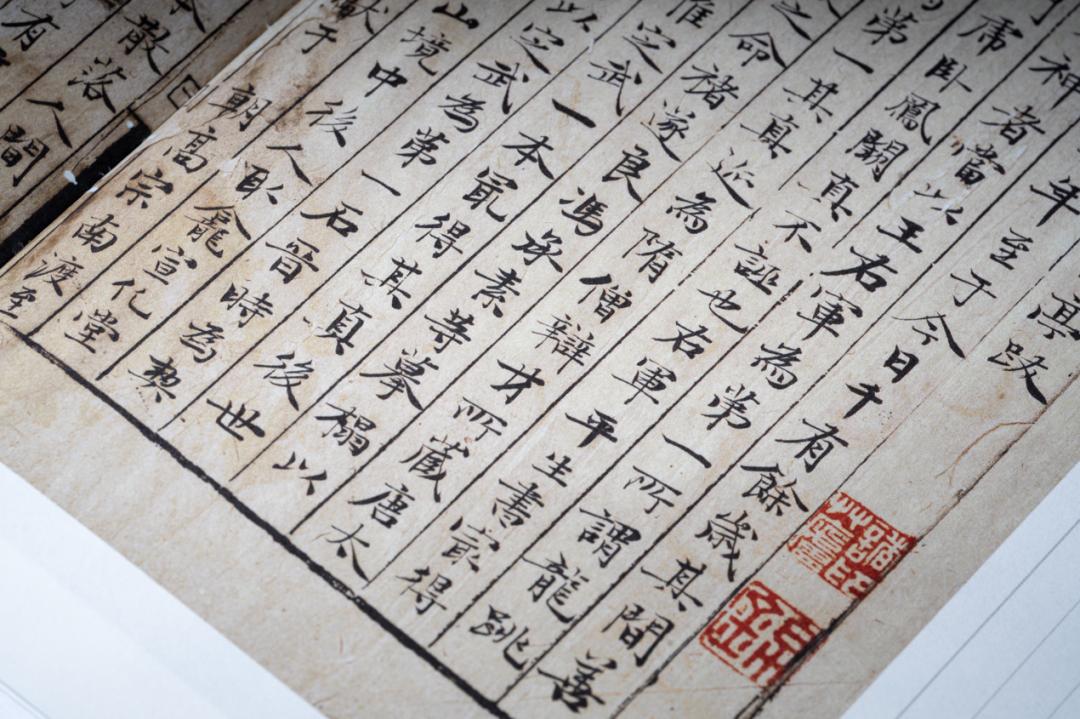 亭跋
年至于今日千有餘歲其間善
神者當以王右軍為第一所謂龍跳
席臥鳳闕真不誣也右軍平生書最得
第一其真近為隋僧辯才所藏唐太
之命褚遂良馮承素等摹榻以
惟定武一本最得其真後世
以定武為第一石晉時為契
山境中後人取龕宣化堂
于朝高宗南渡至
散落人間
有